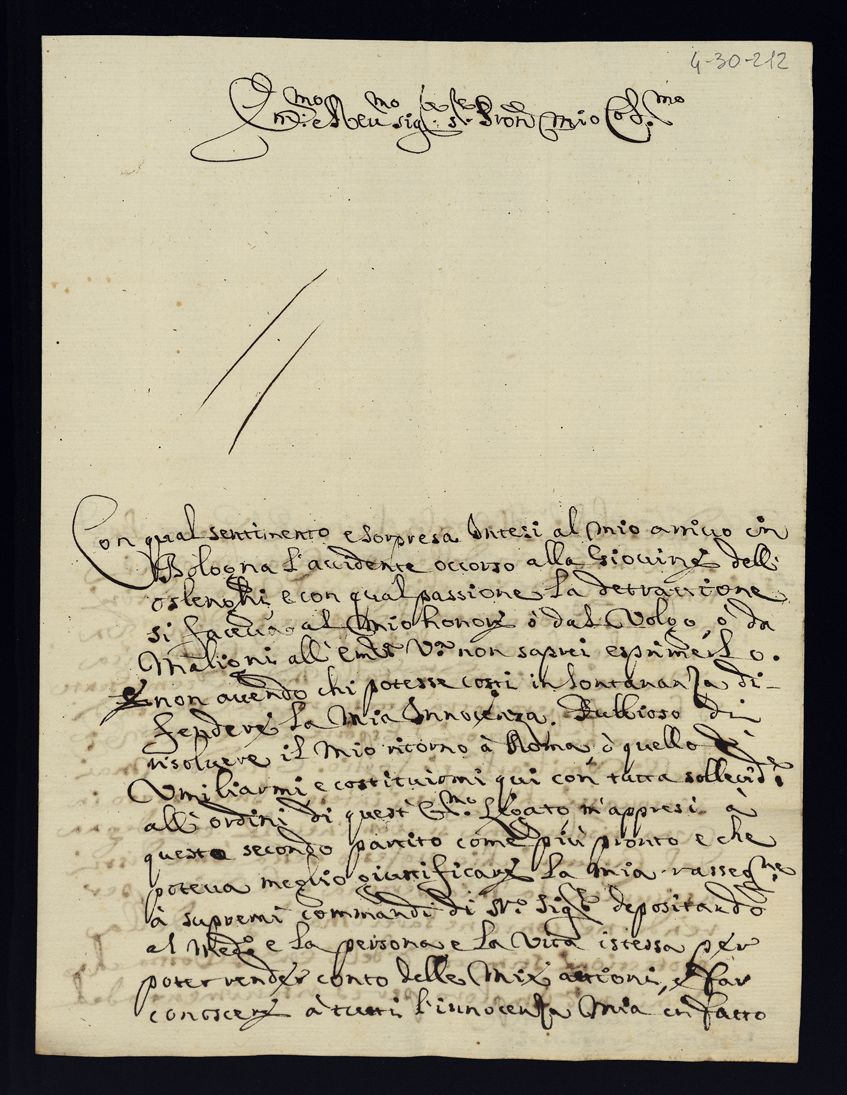 4-30-212
Em:mo e Reu:mo Sig:re Sig:re Pron: mio Col:mo
Con qual sentimento e sorpresa Intesi al mio arriuo in
Bologna l'accidente occorso alla Giouine delli
oslenghi, e con qual passione la detrattione
si faceua al mio honore ò dal Volgo, ò da
Malioni all' Em:za V:ra non saprei esprimerlo.
e non auendo chi potesse costi in lontananza di-
fendere la mia Innocenza. Dubbioso di
risoluere il mio ritorno à Roma ò quello di
Vmiliarmi e costituirmi qui con tutta sollecid:e
alli ordini di quest' Em:mo Legato m'appresi à
questo secondo partito come più pronto e che
poteua meglio giustificare la mia rasseg:ne
à supremi commandi di N:ro Sig:re depositando
al Med:o e la persona e la Vita istessa per
poter render conto delle Mie attioni, e far
conoscere à tutti l'innocenza Mia in fatto